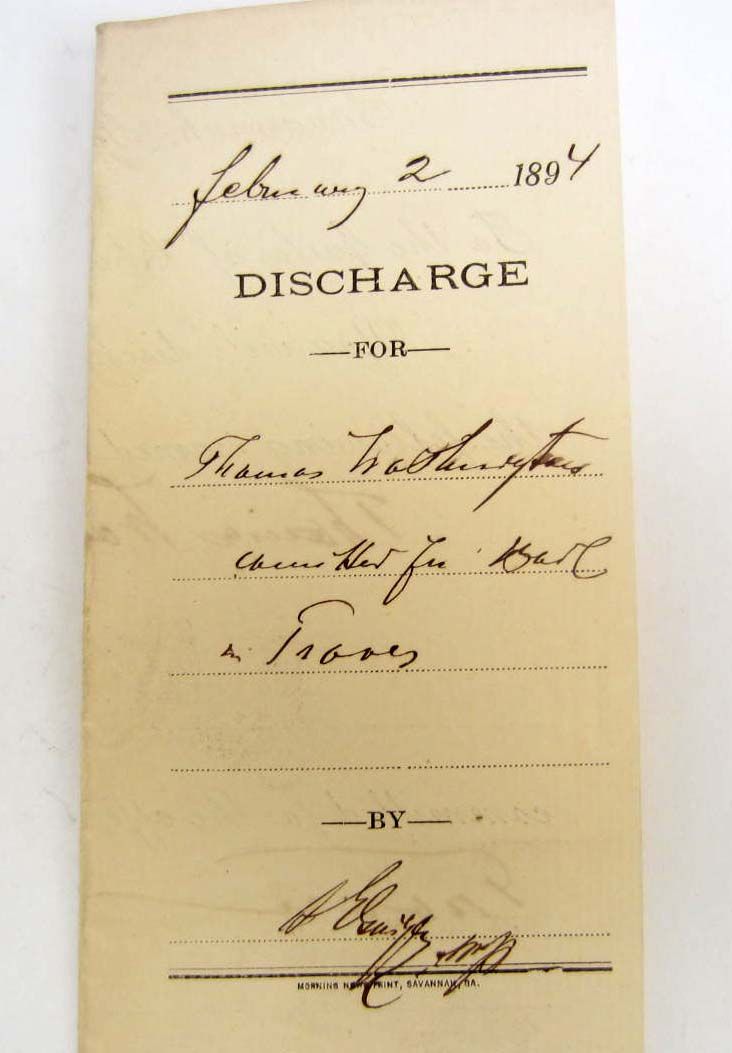 February 2 1894
DISCHARGE
—FOR—
Thomas Washington
committed for
Troves
—BY—
MORNING NEWS PRINT, SAVANNAH, GA.